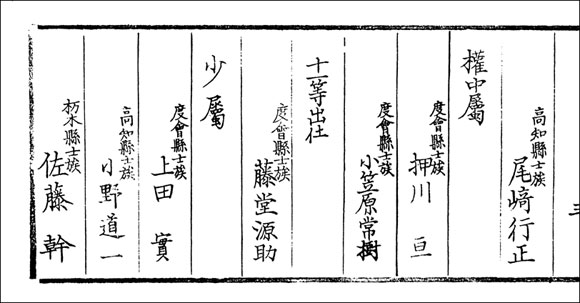 三
高知縣士族 尾﨑行正
權中屬
度會縣士族 押川亘
度會縣士族 小笠原常樹
十一等出仕
度會縣士族 藤堂源助
少屬
度會縣士族 上田實
高知縣士族 小野道一
栃木縣士族 佐藤幹